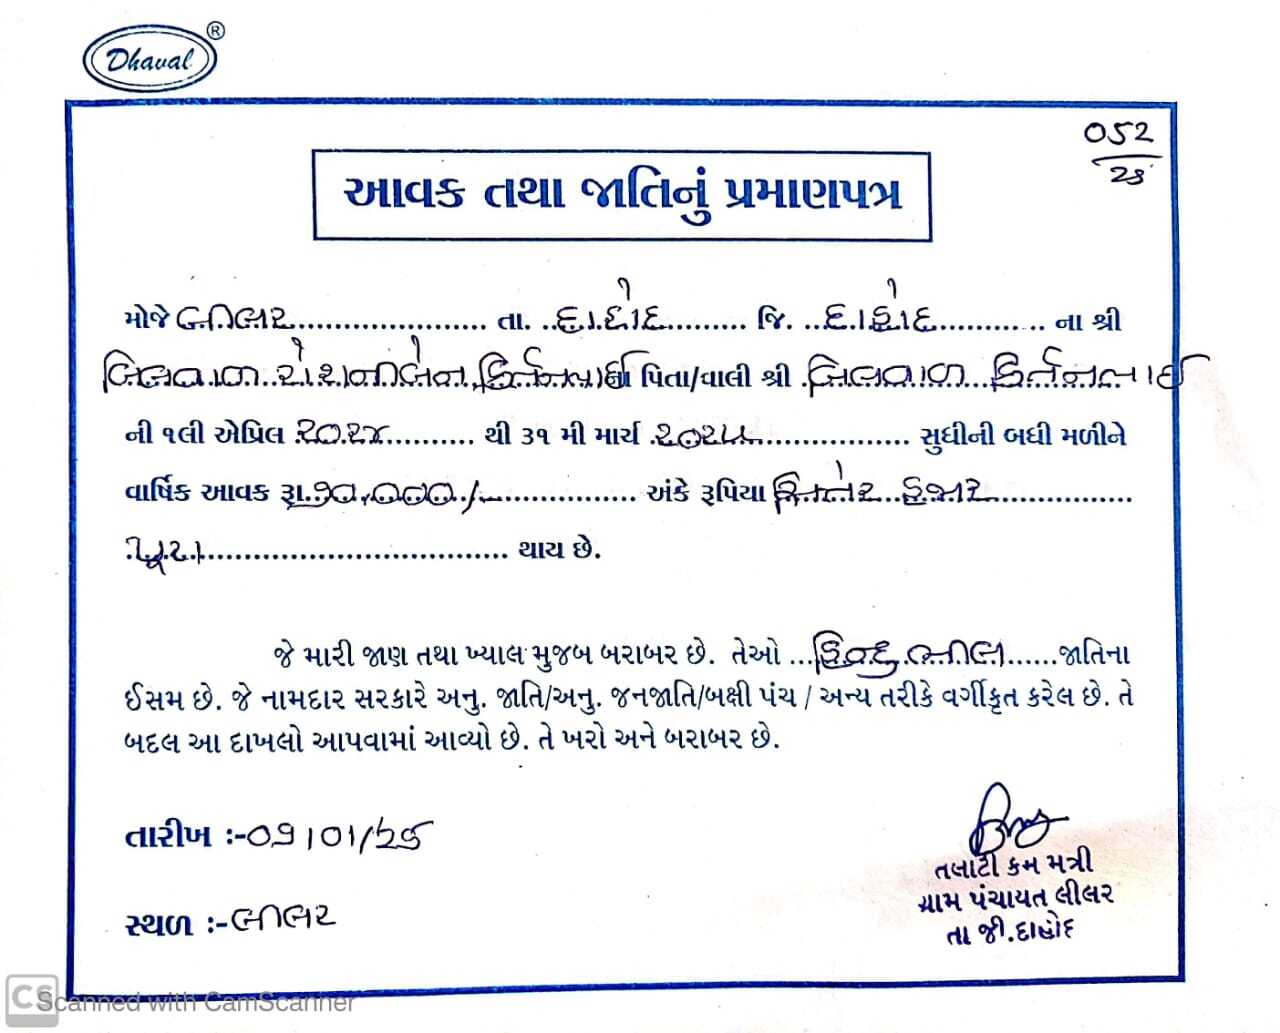 Dhaval ®
052
23
આવક તથા જાતિનું પ્રમાણપત્ર
મોજે લીલર...................... તા. ..દાહોદ......... જિ. ..દાહોદ............ ના શ્રી
બિલવાળ રોશનીબેન કિર્તનભાઈ ના પિતા/વાલી શ્રી બિલવાળ કિર્તનભાઈ
ની ૧લી એપ્રિલ ૨૦૨૪.......... થી ૩૧ મી માર્ચ ૨૦૨૫................. સુધીની બધી મળીને
વાર્ષિક આવક રૂા. ૭૦,૦૦૦/-............... અંકે રૂપિયા સિત્તેર હજાર................
પુરા................................... થાય છે.
જે મારી જાણ તથા ખ્યાલ મુજબ બરાબર છે. તેઓ ...હિન્દુ ભીલ......જાતિના
ઈસમ છે. જે નામદાર સરકારે અનુ. જાતિ/અનુ. જનજાતિ/બક્ષી પંચ / અન્ય તરીકે વર્ગીકૃત કરેલ છે. તે
બદલ આ દાખલો આપવામાં આવ્યો છે. તે ખરો અને બરાબર છે.
તારીખ :-09/01/26
સ્થળ :-લીલર
તલાટી કમ મંત્રી
ગ્રામ પંચાયત લીલર
તા જી.દાહોદ
CS Scanned with CamScanner